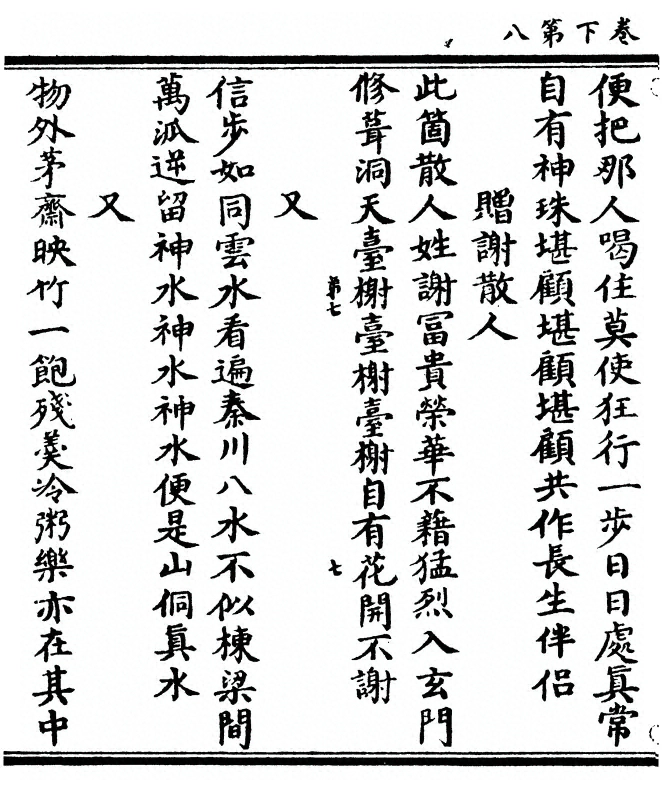 卷下第八
便把那人喝住莫使狂行一步日日處眞常
自有神珠堪顧堪顧堪顧共作長生伴侶
贈謝散人
此箇散人姓謝冨貴榮華不藉猛烈入玄門
修葺洞天臺榭臺榭臺榭自有花開不謝
第七 七
又
信步如同雲水看遍秦川八水不似棟梁間
萬泒逆留神水神水神水便是山侗眞水
又
物外茅齋映竹一飽殘羹冷粥樂亦在其中